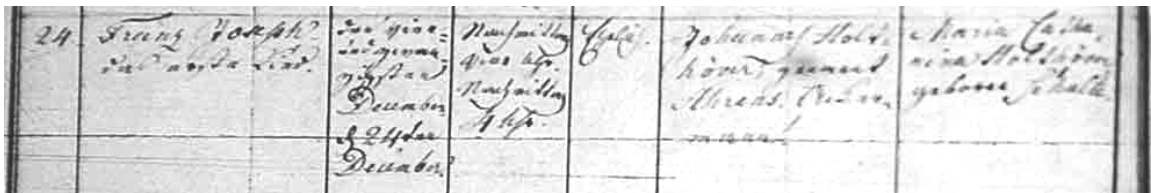 24.
Franz Joseph
das erste Kind.
den vier-
undzwan-
zigsten
December
d 24ten
December
Nachmittag
vier Uhr.
Nachmittag
4 Uhr.
Ehelich.
Johannes Holt-
höver genannt
Ahrens.
mann
Maria Catha-
rina Holthöver
geborne Schulte